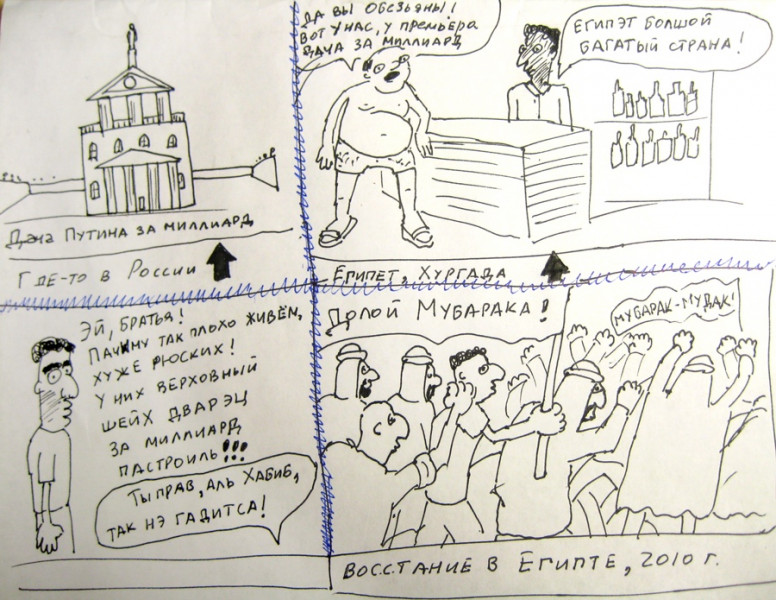 Дача Путина за миллиард
Где-то в России
Да вы обезьяны!
Вот у нас, у премьера
дача за миллиард
Египэт болшой
багатый страна!
Египет, Хургада
Эй, братья!
Пачиму так плохо живём,
хуже рюских!
У них верховный
шейх дварэц
за миллиард
пастроиль!!!
Ты прав, аль Хабиб,
так нэ гадитса!
Долой Мубарака!
Мубарак-мудак!
Восстание в Египте, 2010 г.